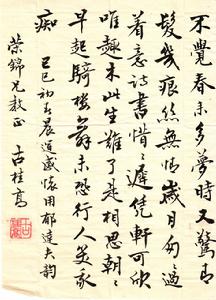 不覺春來多夢時又驚
髮幾痕絲無情歲月匆過
着意詩書惜〻遲凭軒可欣
唯趣未此生难了是相思朝〻
早起騎樓舞未恐行人笑我
痴 己巳初春晨運感懷用郁達夫韵
荣錦兄教正 古桂高